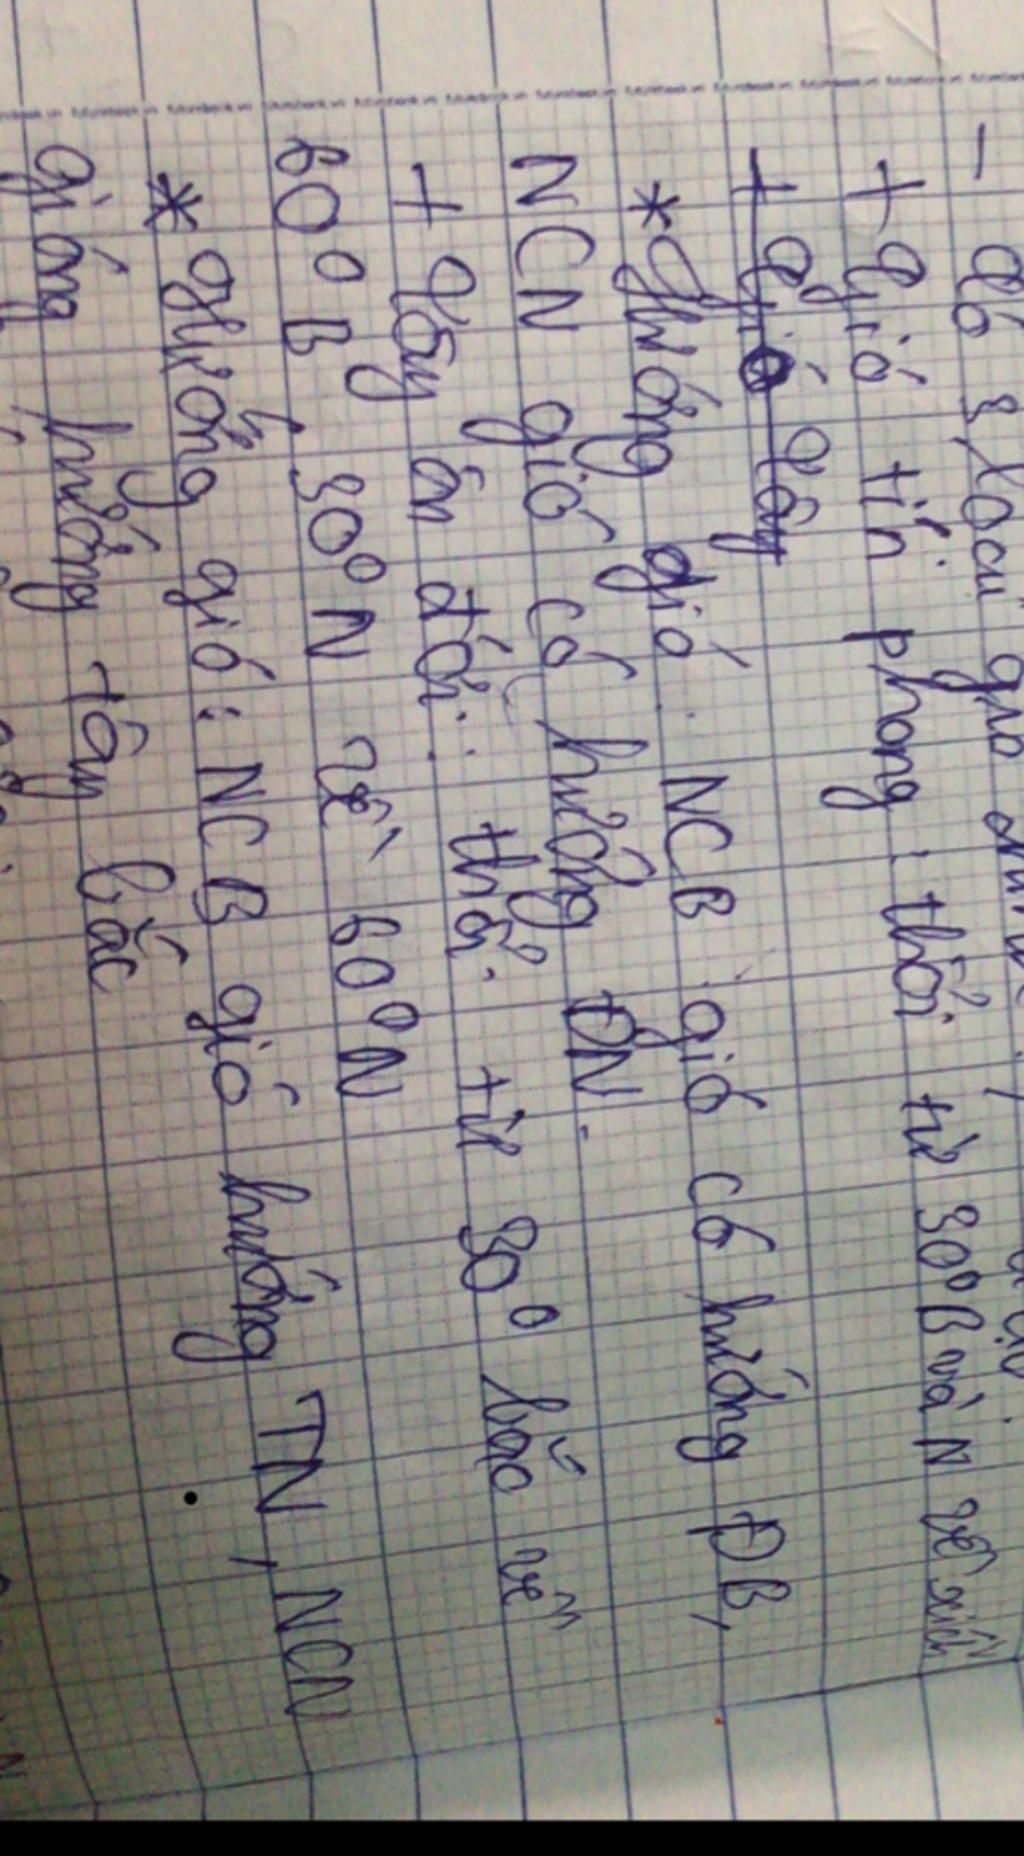 - Có 3 loại gió chính
+ Gió tín phong: thổi từ 30°B và N về xích
+ Gió tây
* Hướng gió: NCB gió có hướng ĐB,
NCN gió có hướng ĐN.
+ Tây ôn đới: thổi từ 30° bắc về
60°B, 30°N về 60°N
* hướng gió: NCB gió hướng TN, NCN
gióng hướng tây bắc